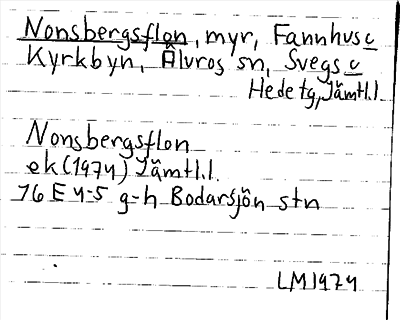 Nonsbergsflon, myr, Fannhus u
Kyrkbyn, Älvros sn, Svegs u
Hede tg, Jämtl.l.
Nonsbergsflon
ek (1974) Jämtl.l.
16 E 4-5 g-h Bodarsjön stn
LM1974